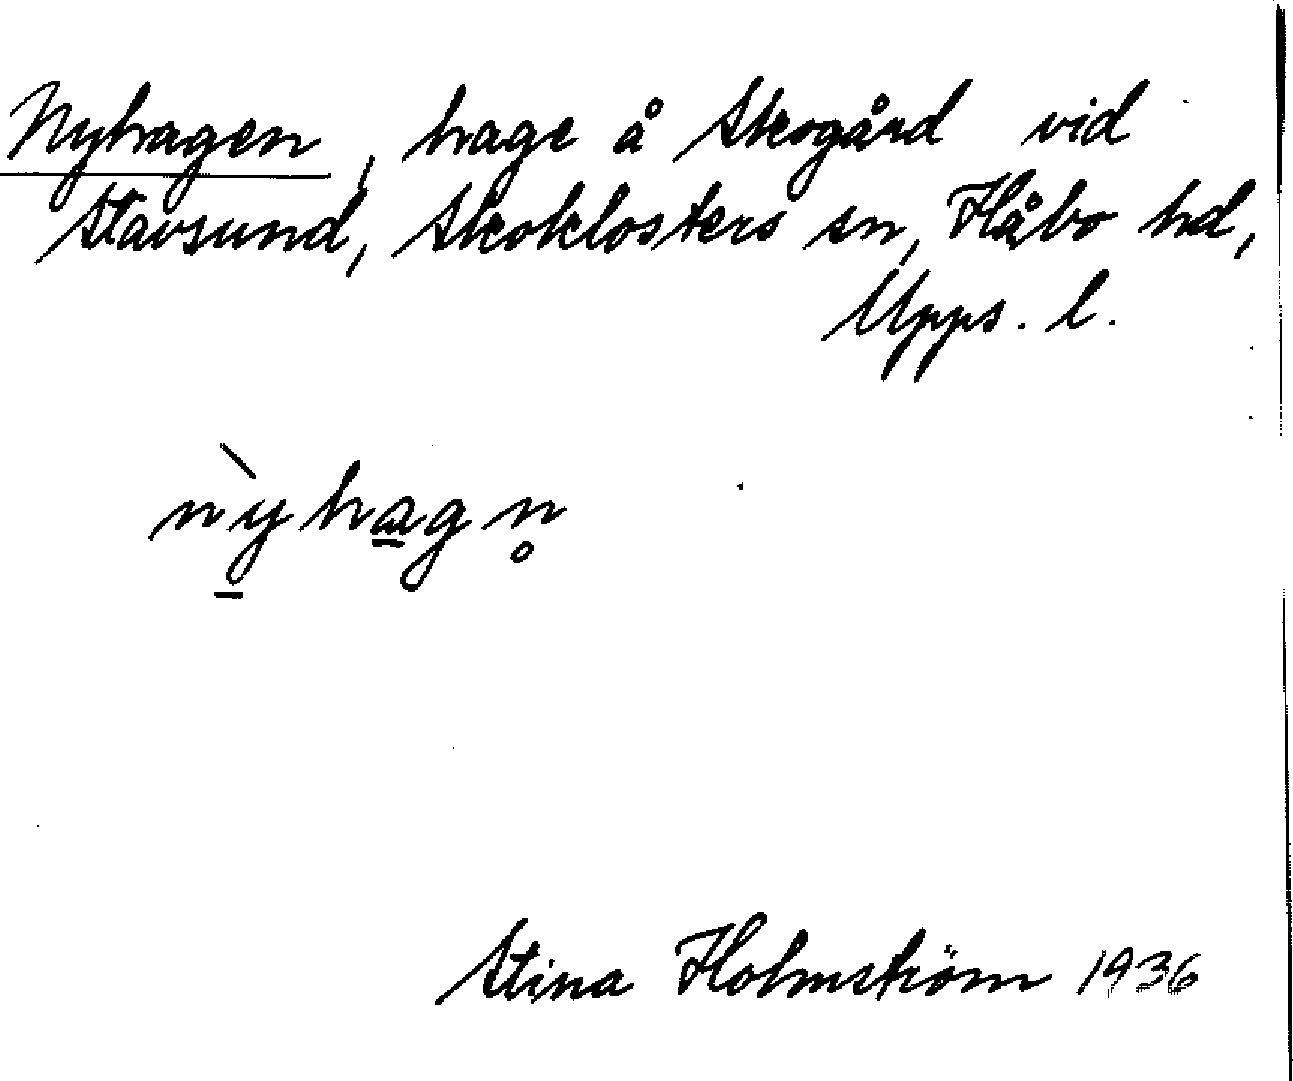 Nyhagen, hage å Skogård vid
Stavsund, Skoklosters sn, Håbo hd,
Upps. l.
nỳ̠ha̠gn̥
Stina Holmström 1936